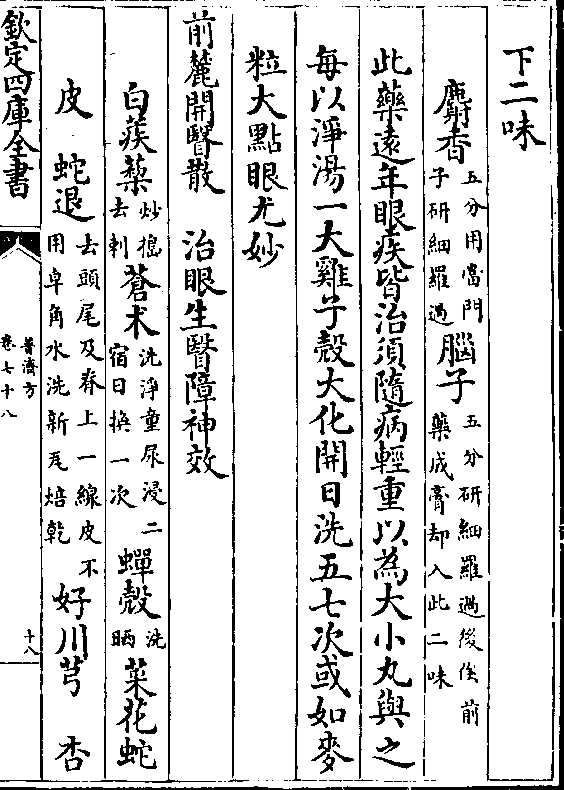 下二味
麝香五分用當門子研細羅過腦子五分研細羅過後俟前藥成膏却入此二味
此藥遠年眼疾皆治須隨病輕重以為大小丸與之
每以淨湯一大雞子殼大化開日洗五七次或如麥
粒大點眼尤妙
前麓開瞖散　治眼生瞖障神效
白蒺蔾炒搗去刺蒼术洗淨童尿浸二宿日換一次蟬殼洗晒菜花蛇
皮　蛇退去頭尾及脊上一線皮不用皁角水洗新瓦焙乾好川芎　杏
欽定四庫全書
普濟方
卷七十八
十八